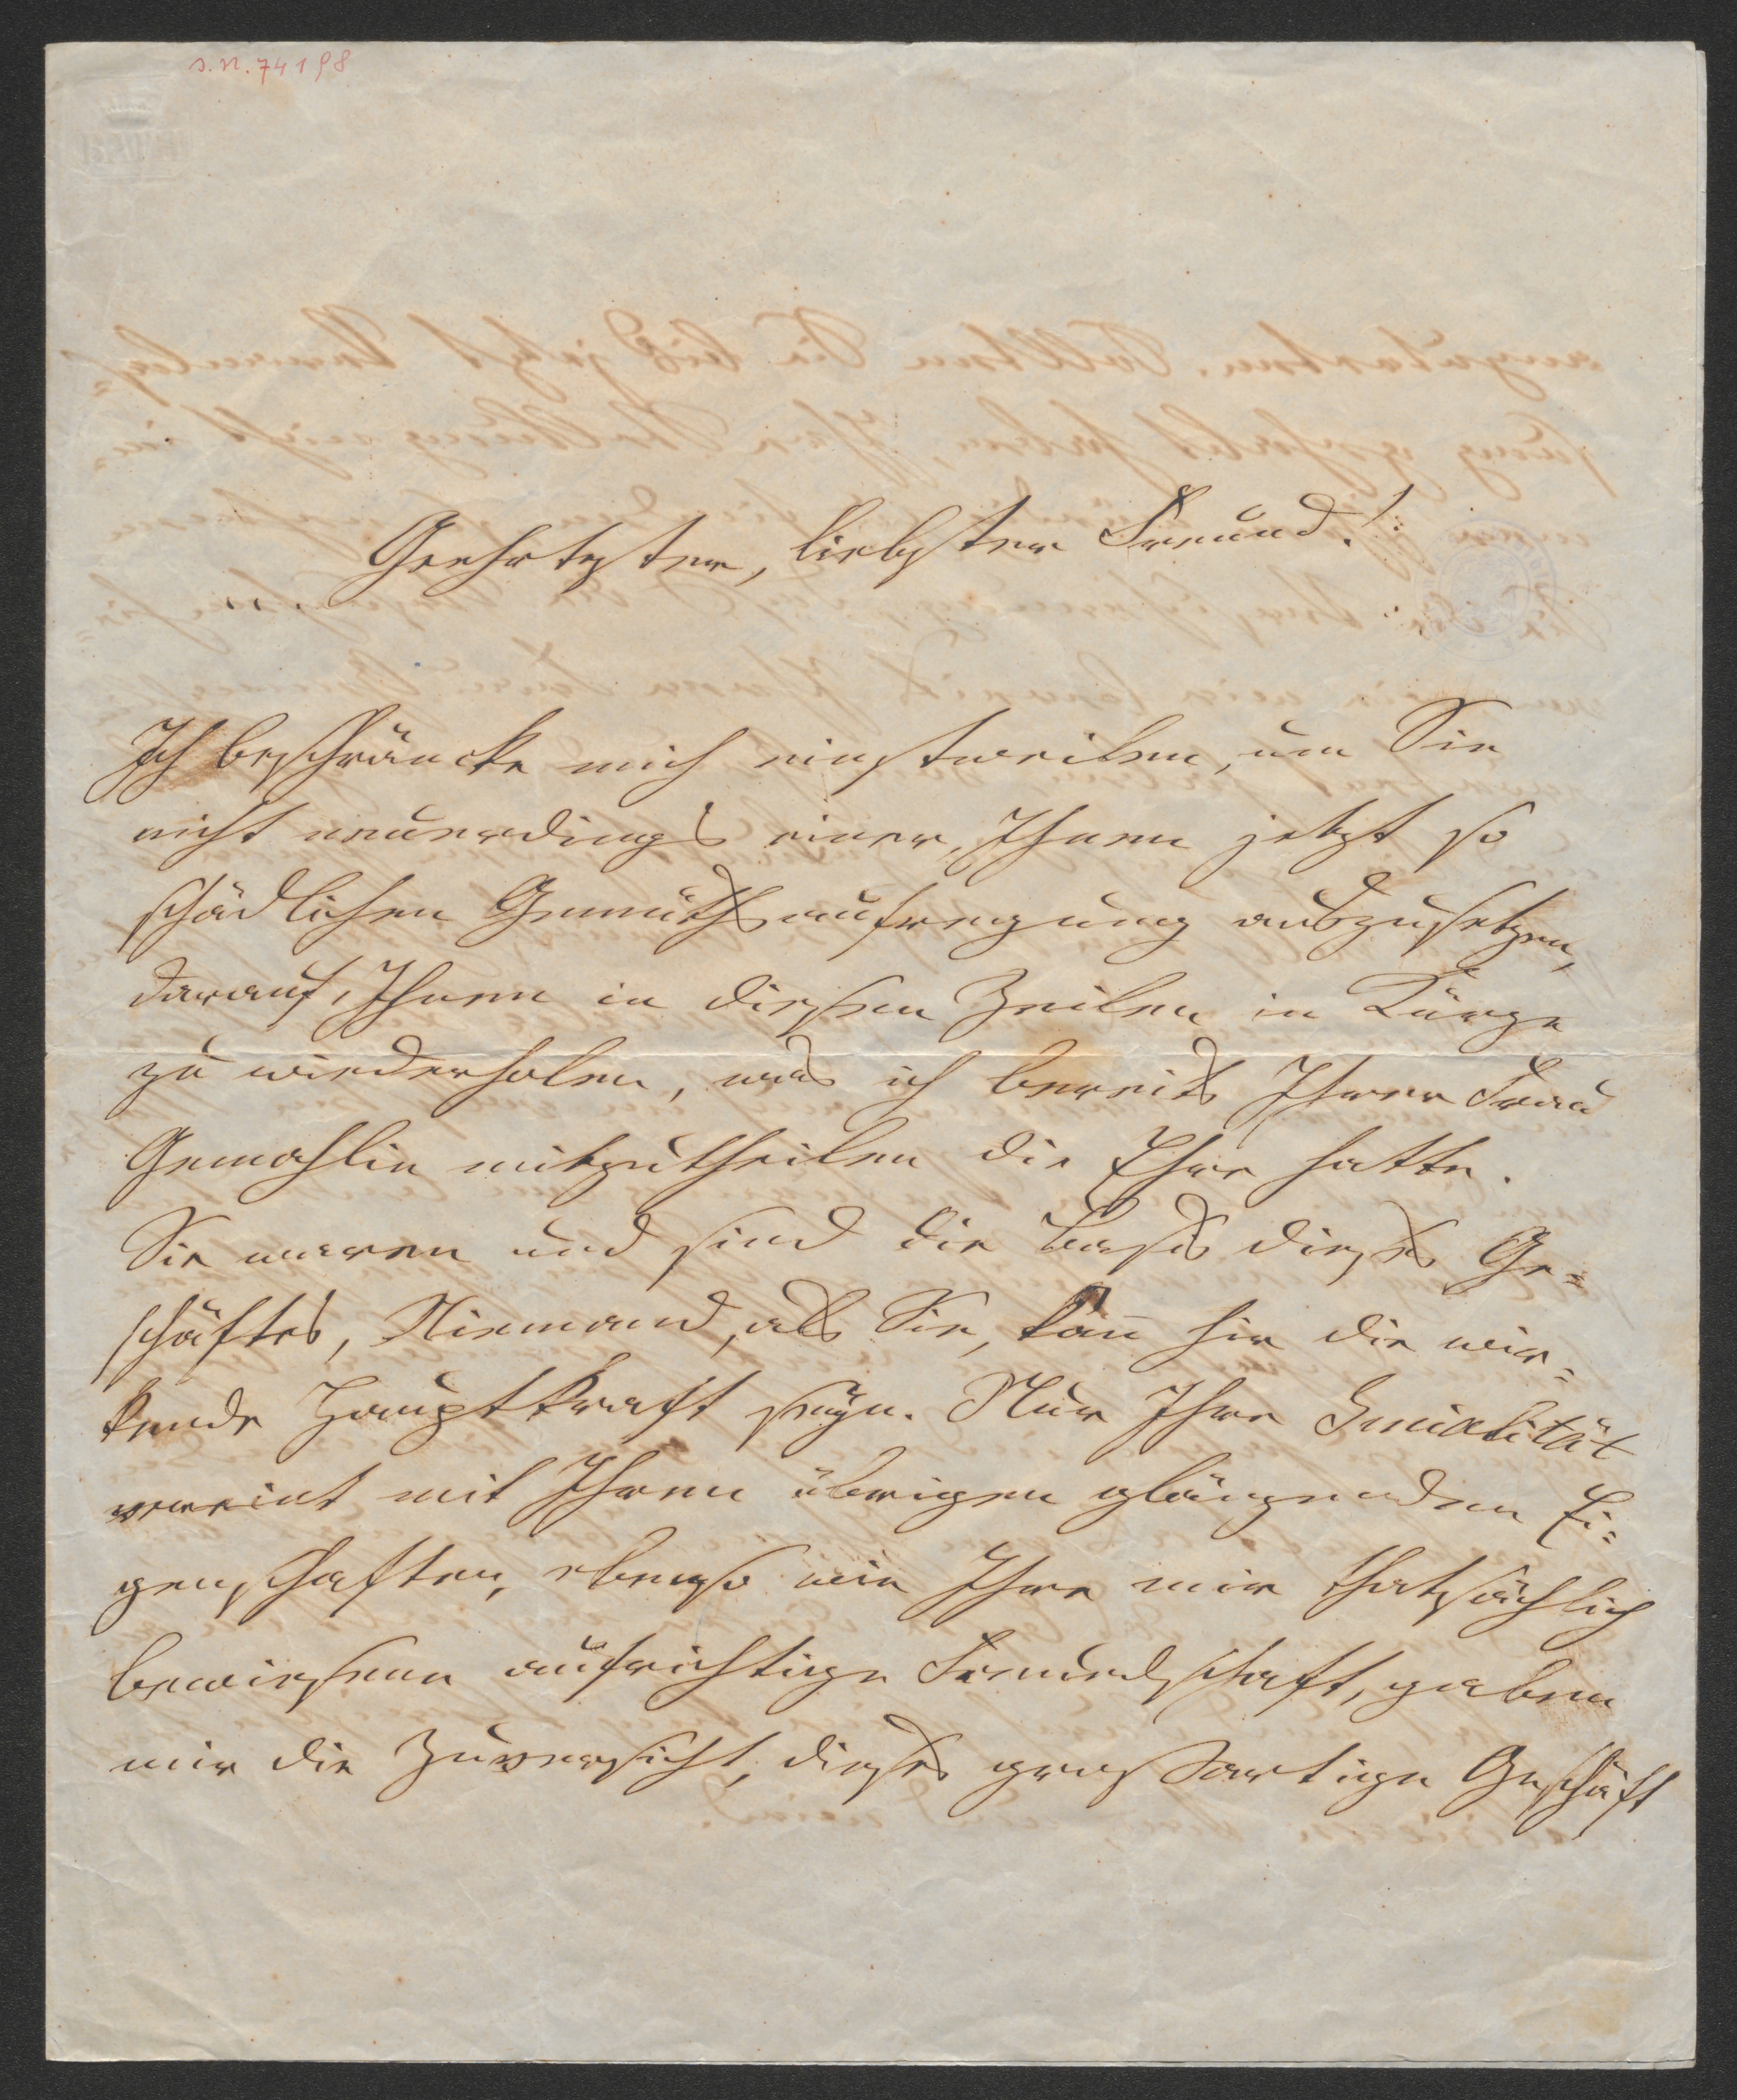 s. n. 74198
Geehrtester, liebster Freund!
Ich beschräncke mich einstweilen, um Sie
nicht neuerdings einer, Ihnen jetzt so
schädlichen Gemüthsaufregung auszusetzen,
darauf, Ihnen in diesen Zeilen in Kürze
zu wiederholen, was ich bereits Ihrer Frau
Gemahlin mitzutheilen die Ehre hatte.
Sie waren und sind die Basis dieses Ge=
schäftes, Niemand, als Sie, kan̄ hir die wir=
kende Hauptkraft seyn. Nur Ihre Genialität
vereint mit Ihren übrigen glänzenden Ei=
genschaften, ebenso wie Ihre mir thatsächlich
bewiesene aufrichtige Freundschaft, gaben
mir die Zuversicht, dieses großartige Geschäft